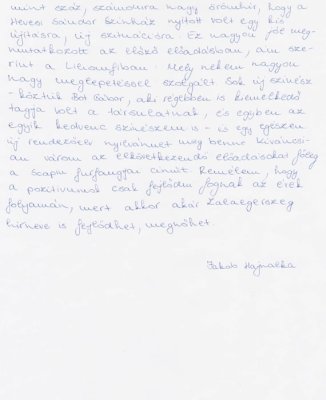 mint száz, számomra nagy örömhír, hogy a
Hevesi Sándor Színház nyitott volt egy kis
újításra, új szituációra. Ez nagyon jól meg-
mutatkozott az előző előadásban, ami sze-
rint a Liliomfiban. Mely nekem nagyon
nagy meglepetéssel szolgált. Sok új színész
köztük Bot Gábor, aki régebben is kiemelkedő
tagja volt a társulatnak, és egyben az
egyik kedvenc színészem is - és egy egészen
új rendezőelv nyilvánult meg benne. Kíváncsi-
an várom az elkövetkezendő előadásokat főleg
a Scapin furfangjai címűt. Remélem, hogy
a pozitívumok csak fejlődni fognak az évek
folyamán, mert akkor akár Zalaegerszeg
hírneve is fejlődhet, megnőhet
Jakab Hajnalka